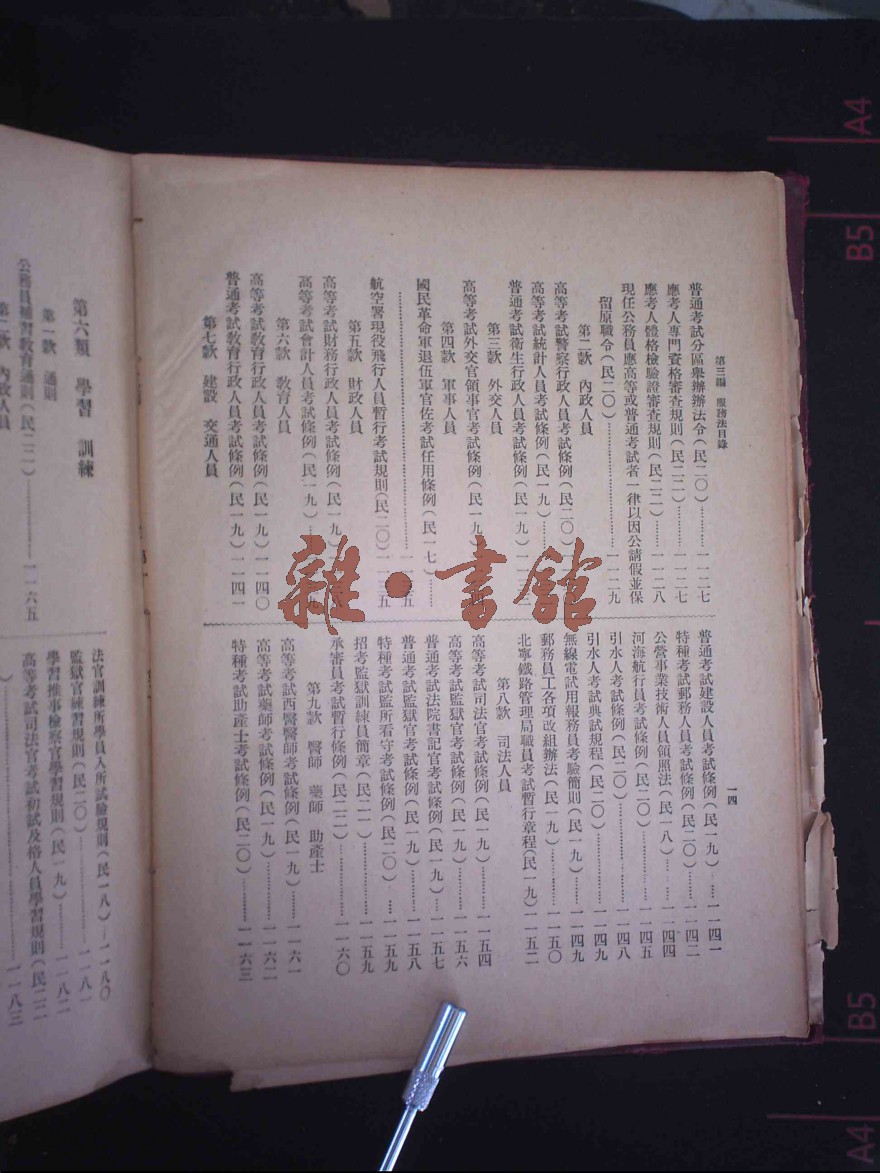 第三編 服務法目錄
一四
普通考試分區舉辦辦法令(民二〇)………一一二七
應考人專門資格審查規則(民二二)………一一二七
應考人體格檢驗證審查規則(民二二)………一一二八
現任公務員應高等或普通考試者一律以因公請假並保
留原職令(民二〇)………一一二九
第二款 內政人員
高等考試警察行政人員考試條例(民二〇)
高等考試統計人員考試條例(民一九)
普通考試衛生行政人員考試條例(民一九)
第三款 外交人員
高等考試外交官領事官考試條例(民一九)
第四款 軍事人員
國民革命軍退伍軍官佐考試任用條例(民一七)……
………一一三五
航空署現役飛行人員暫行考試規則(民二〇)一一三五
第五款 財政人員
高等考試財務行政人員考試條例(民一九)
高等考試會計人員考試條例(民一九)
第六款 教育人員
高等考試教育行政人員考試條例(民一九)一一四〇
普通考試教育行政人員考試條例(民一九)一一四一
第七款 建設 交通人員
普通考試建設人員考試條例(民一九)……一一四一
特種考試郵務人員考試條例(民二〇)……一一四二
公營事業技術人員領照法(民一八)……一一四四
河海航行員考試條例(民二〇)………一一四五
引水人考試條例(民二〇)………一一四八
引水人考試典試規程(民二〇)………一一四九
無線電試用報務員考驗簡則(民一九)……一一四九
郵務員工各項改組辦法(民一九)………一一五〇
北寧鐵路管理局職員考試暫行章程(民一九)一一五二
第八款 司法人員
高等考試司法官考試條例(民一九)………一一五四
高等考試監獄官考試條例(民一九)………一一五六
普通考試法院書記官考試條例(民一九)……一一五七
普通考試監獄官考試條例(民一九)………一一五八
特種考試監所看守考試條例(民二〇)……一一五九
招考監獄訓練員簡章(民二一)………一一五九
承審員考試暫行條例(民二二)………一一六〇
第九款 醫師 藥師 助產士
高等考試西醫醫師考試條例(民一九)……一一六一
高等考試藥師考試條例(民一九)………一一六二
特種考試助產士考試條例(民二〇)………一一六三
第六類 學習 訓練
第一款 通則
公務員補習教育通則(民二二)………一一六五
第二款 內政人員
法官訓練所學員入所試驗規則(民一八)…一一八〇
監獄官練習規則(民二〇)………一一八一
學習推事檢察官學習規則(民一九)………一一八二
高等考試司法官考試初試及格人員學習規則(民二二
)………一一八三
雜·書館
A4
B5
B5
A4